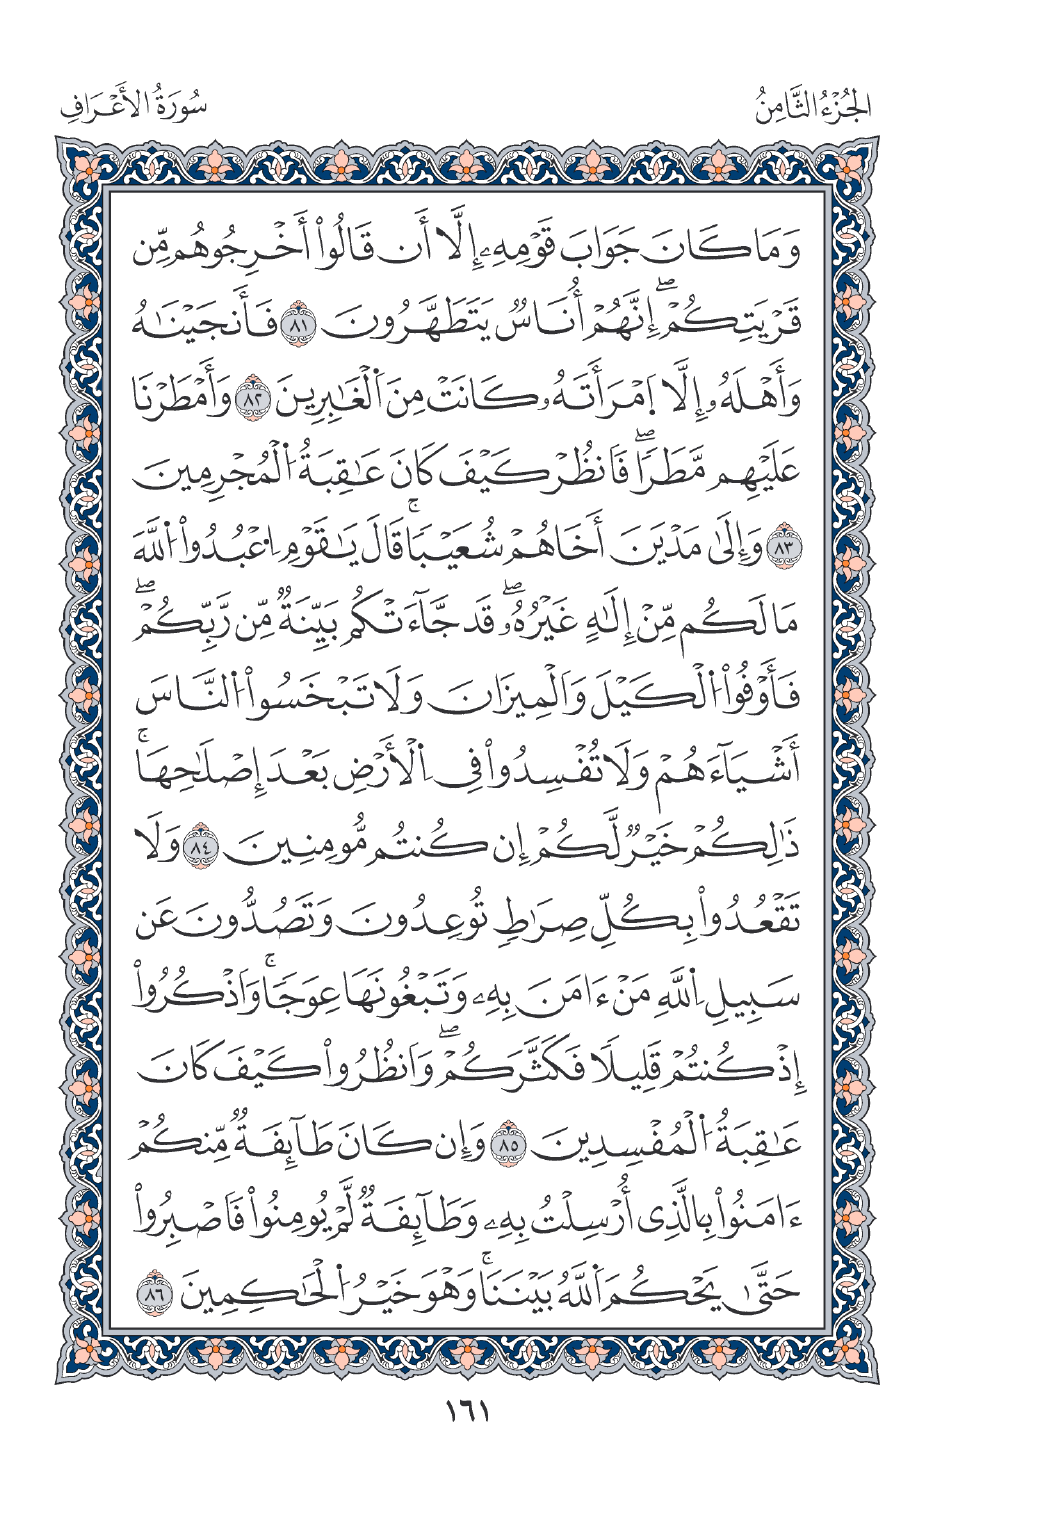 الجُزْءُ الثَّامِنُ
سُورَةُ الأَعْرَافِ
وَمَا كَانَ جَوَابَ قَوْمِهِۦ إِلَّا أَن قَالُواْ أَخْرِجُوهُم مِّن
قَرْيَتِكُمْۖ إِنَّهُمْ أُنَاسٌ يَتَطَهَّرُونَ ٨١ فَأَنجَيْنَٰهُ
وَأَهْلَهُۥ إِلَّا اَ۪مْرَأَتَهُۥ كَانَتْ مِنَ اَلْغَٰبِرِينَ ٨٢ وَأَمْطَرْنَا
عَلَيْهِم مَّطَرٗاۖ فَانظُرْ كَيْفَ كَانَ عَٰقِبَةُ اُلْمُجْرِمِينَ
٨٣ وَإِلَىٰ مَدْيَنَ أَخَاهُمْ شُعَيْبٗاۚ قَالَ يَٰقَوْمِ اِ۟عْبُدُواْ اُللَّهَ
مَا لَكُم مِّنْ إِلَٰهٍ غَيْرُهُۥۖ قَد جَّآءَتْكُم بَيِّنَةٞ مِّن رَّبِّكُمْۖ
فَأَوْفُواْ اُلْكَيْلَ وَاَلْمِيزَانَ وَلَا تَبْخَسُواْ اُلنَّاسَ
أَشْيَآءَهُمْ وَلَا تُفْسِدُواْ فِي اِلْأَرْضِ بَعْدَ إِصْلَٰحِهَاۚ
ذَٰلِكُمْ خَيْرٞ لَّكُمْ إِن كُنتُم مُّومِنِينَ ٨٤ وَلَا
تَقْعُدُواْ بِكُلِّ صِرَٰطٍ تُوعِدُونَ وَتَصُدُّونَ عَن
سَبِيلِ اِللَّهِ مَنْ ءَامَنَ بِهِۦ وَتَبْغُونَهَا عِوَجٗاۚ وَاَذْكُرُواْ
إِذْ كُنتُمْ قَلِيلٗا فَكَثَّرَكُمْۖ وَاَنظُرُواْ كَيْفَ كَانَ
عَٰقِبَةُ اُلْمُفْسِدِينَ ٨٥ وَإِن كَانَ طَآئِفَةٞ مِّنكُمْ
ءَامَنُواْ بِالَّذِي أُرْسِلْتُ بِهِۦ وَطَآئِفَةٞ لَّمْ يُومِنُواْ فَاصْبِرُواْ
حَتَّىٰ يَحْكُمَ اَللَّهُ بَيْنَنَاۚ وَهْوَ خَيْرُ اُلْحَٰكِمِينَ ٨٦
١٦١